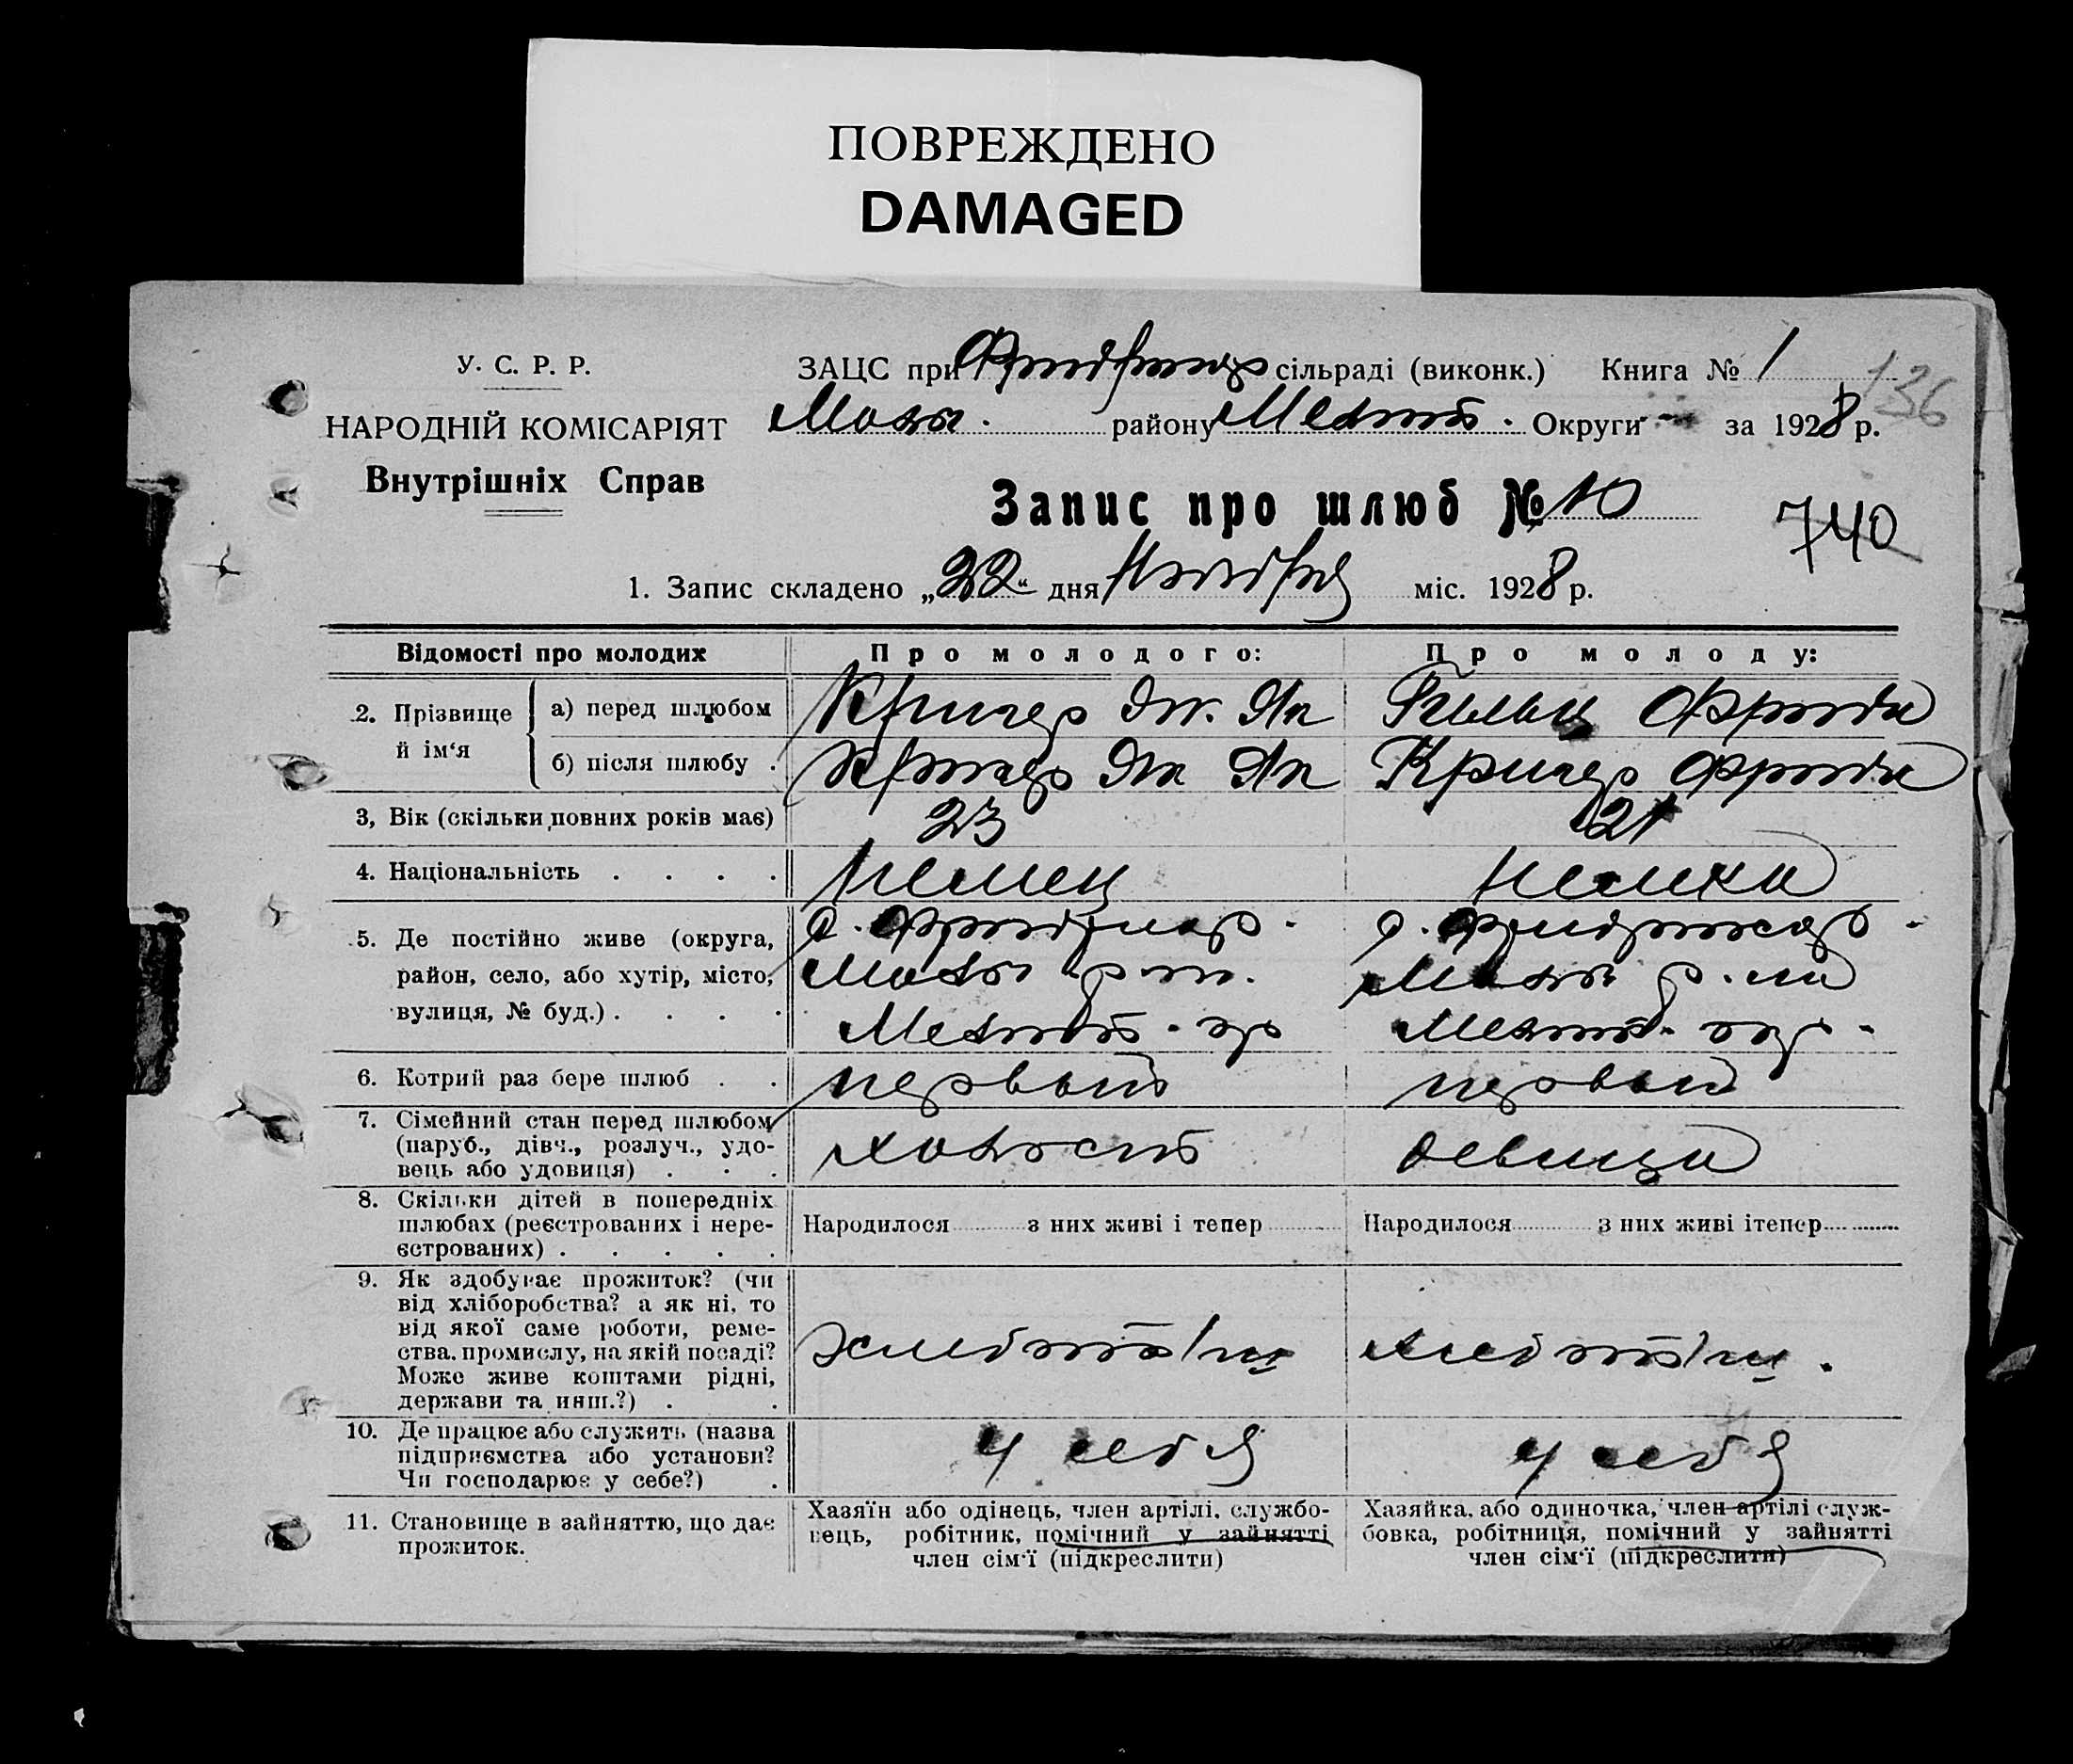 ПОВРЕЖДЕНО
DAMAGED
У. С. Р. Р.
НАРОДНІЙ КОМІСАРІЯТ
Внутрішніх Справ
ЗАЦС при сільраді (виконк.) Книга № 1
136
району Мелит. Округи за 1928 р.
Запис про шлюб № 10
740
1. Запис складено „22“ дня Ноября міс. 1928 р.
Відомості про молодих
Про молодого:
Про молоду:
2. Прізвище й ім‘я
а) перед шлюбом
Кригер Як. Як
Фрида
б) після шлюбу .
Кригер Як Як
Кригер Фрида
3, Вік (скільки повних років має)
23
21
4. Національність . . . .
Немец
Немка
5. Де постійно живе (округа,
район, село, або хутір, місто,
вулиця, № буд.) . . . .
р-на
Мелит. окр
р-на
Мелит. окр.
6. Котрий раз бере шлюб . .
первый
первый
7. Сімейний стан перед шлюбом
(паруб., дівч., розлуч., удо-
вець або удовиця) . . .
холостой
девица
8. Скільки дітей в попередніх
шлюбах (реєстрованих і нере-
єстрованих) . . . . .
Народилося з них живі і тепер
Народилося з них живі ітепер
9. Як здобуває прожиток? (чи
від хліборобства? а як ні, то
від якої саме роботи, реме-
ства, промислу, на якій посаді?
Може живе коштами рідні,
держави та инш.?) . .
10. Де працює або служить (назва
підприємства або установи?
Чи господарює у себе?) .
у себя
у себя
11. Становище в зайняттю, що дає
прожиток.
Хазяїн або одінець, член артілі, службо-
вець, робітник, помічний у зайнятті
член сім‘ї (підкреслити)
Хазяйка, або одиночка, член артілі служ-
бовка, робітниця, помічний у зайнятті
член сім‘ї (підкреслити)